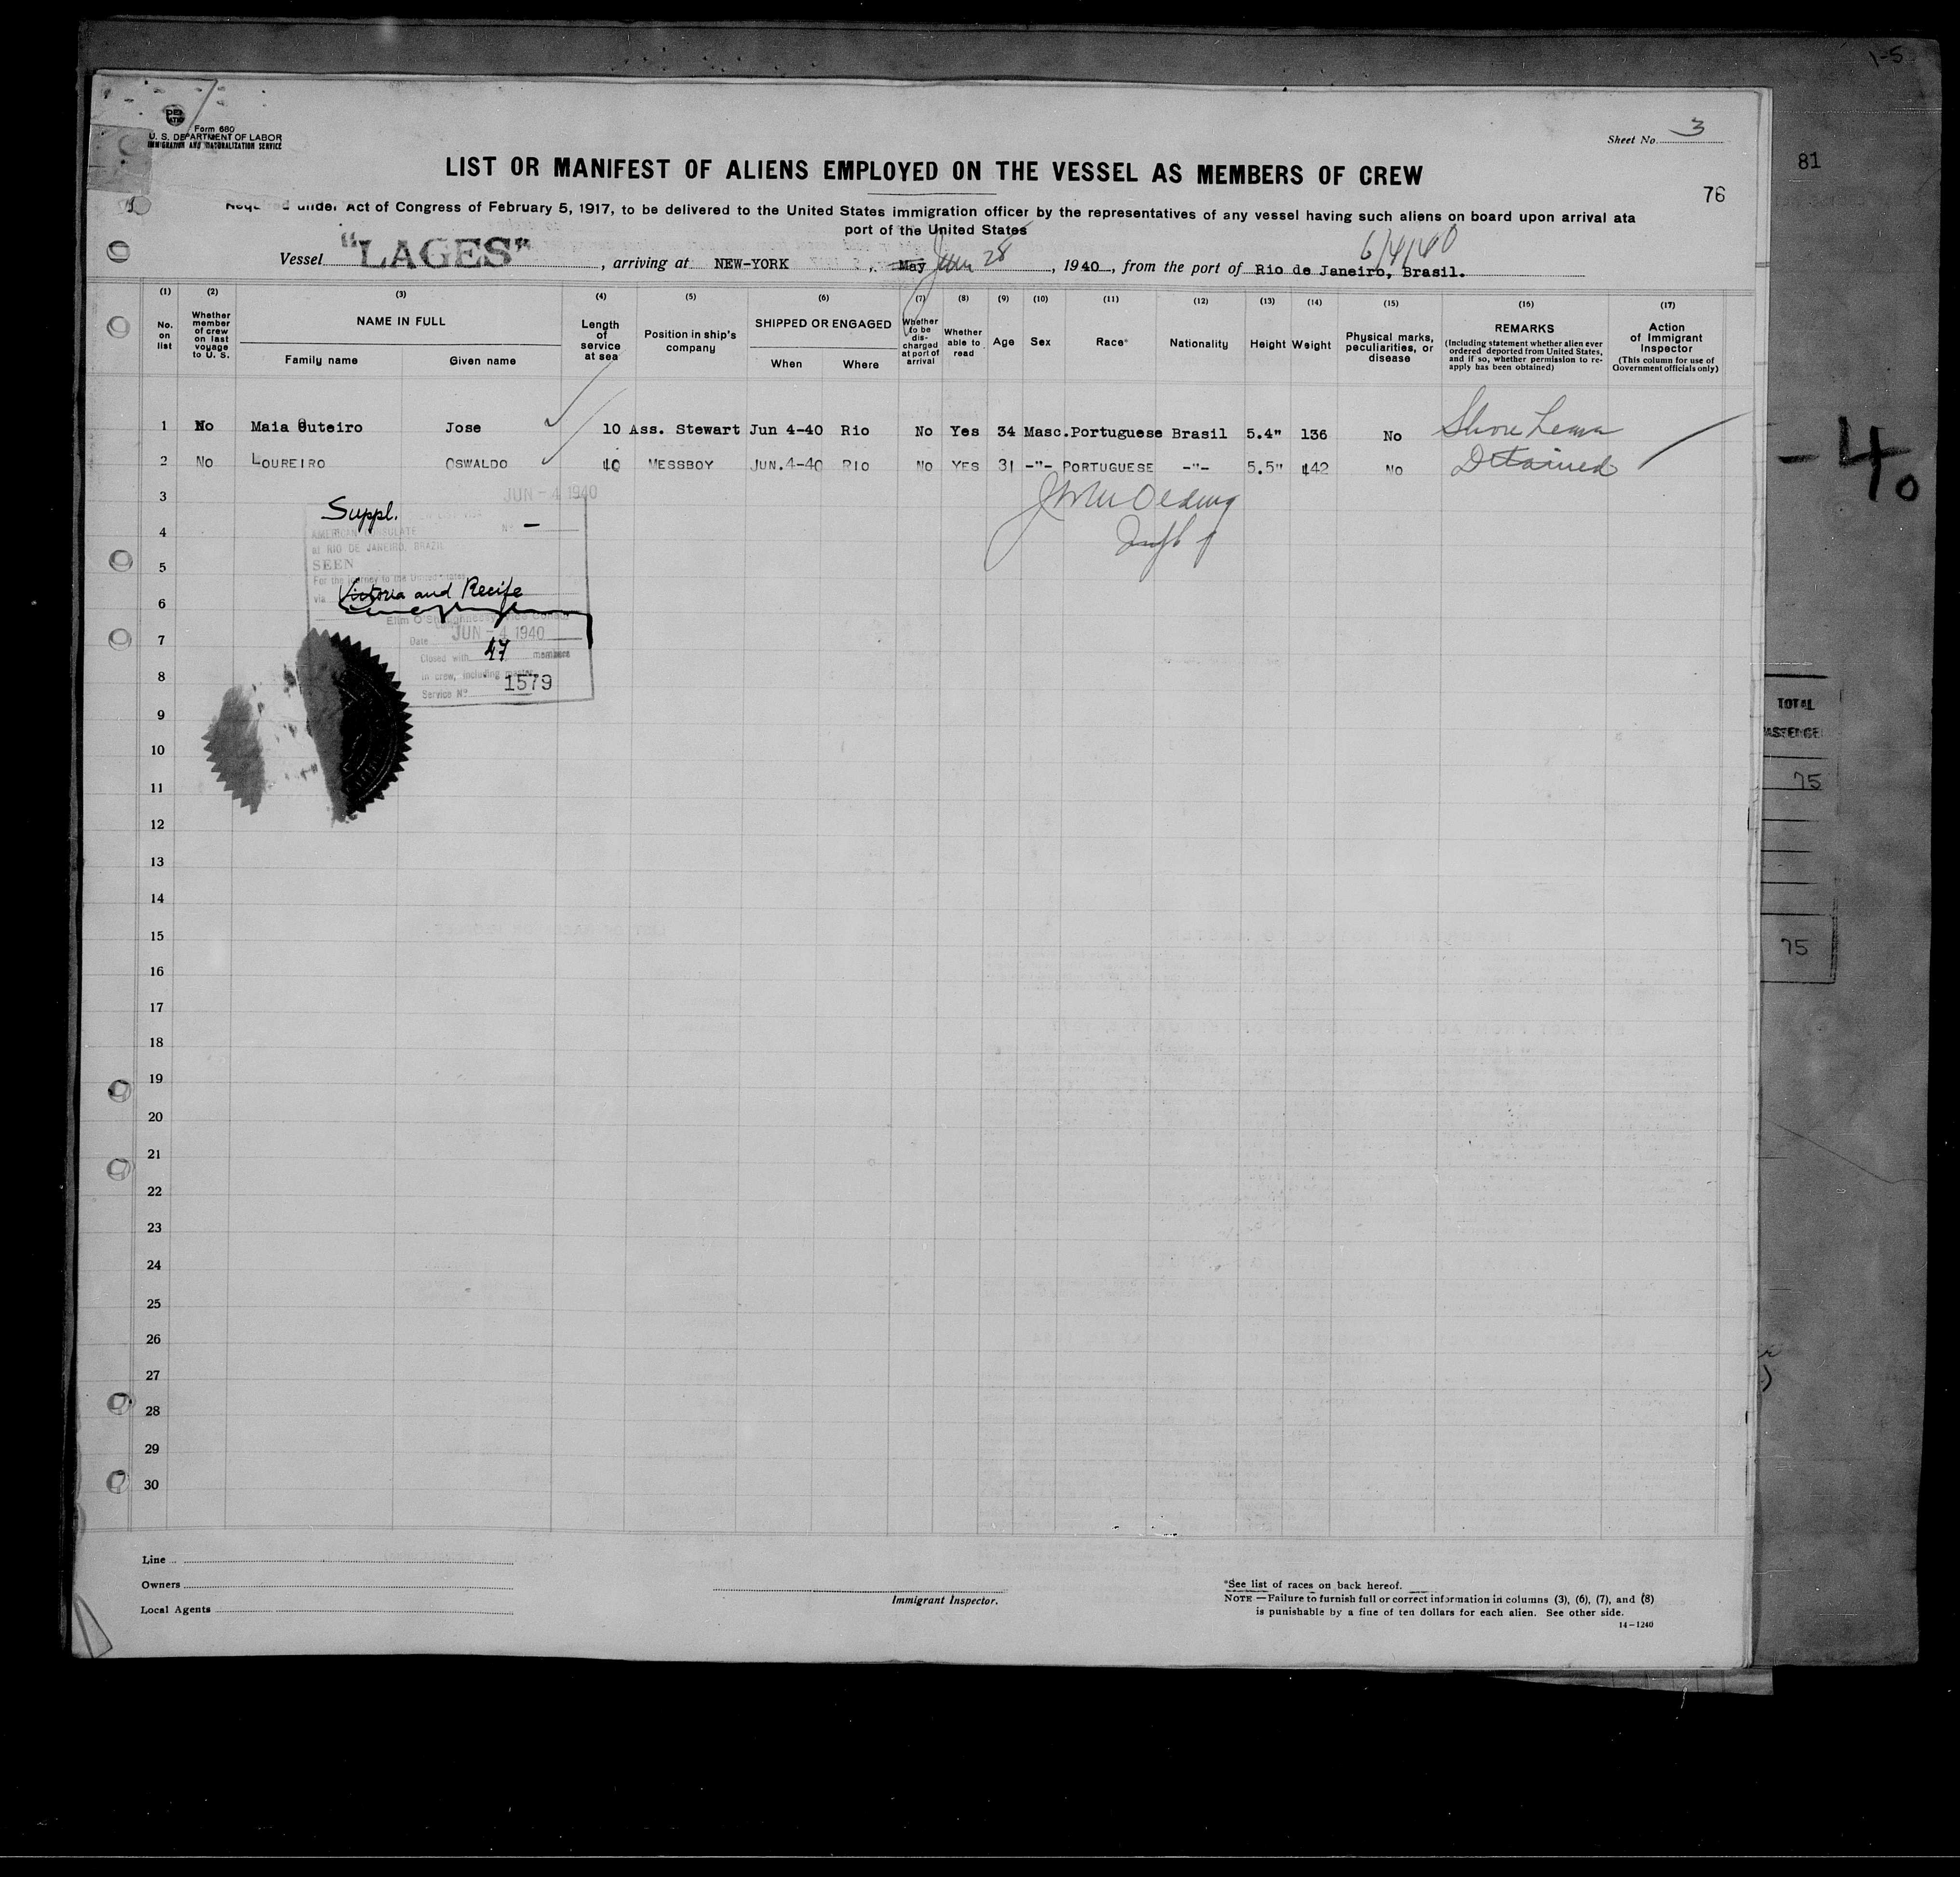 1-5
Form 680
U. S. DEPARTMENT OF LABOR
IMMIGRATION AND NATURALIZATION SERVICE
Sheet No. 3
81
LIST OR MANIFEST OF ALIENS EMPLOYED ON THE VESSEL AS MEMBERS OF CREW
76
Required under Act of Congress of February 5, 1917, to be delivered to the United States immigration officer by the representatives of any vessel having such aliens on board upon arrival at a
port of the United States
6/4/40
Vessel "LAGES", arriving at NEW-YORK, May June 28, 1940, from the port of Rio de Janeiro, Brasil.
(1) (2) (3) (4) (5) (6) (7) (8) (9) (10) (11) (12) (13) (14) (15) (16) (17)
No. on list
Whether member of crew on last voyage to U. S.
NAME IN FULL
Family name Given name
Length of service at sea
Position in ship's company
SHIPPED OR ENGAGED
When Where
Whether to be discharged at port of arrival
Whether able to read
Age
Sex
Race*
Nationality
Height
Weight
Physical marks, peculiarities, or disease
REMARKS
(Including statement whether alien ever ordered deported from United States, and if so, whether permission to re-apply has been obtained)
Action of Immigrant Inspector
(This column for use of Government officials only)
1 No Maia Outeiro Jose 10 Ass. Stewart Jun 4-40 Rio No Yes 34 Masc. Portuguese Brasil 5.4" 136 No Shore Leave
2 No LOUREIRO OSWALDO 10 MESSBOY JUN.4-40 RIO NO YES 31 -"- PORTUGUESE -"- 5.5" 142 NO Detained
-40
3
JUN - 4 1940
Suppl.
Nº -
4
AMERICAN CONSULATE
at RIO DE JANEIRO, BRAZIL
5
SEEN
For the journey to the United States
via Victoria and Recife
6
Vice Consul
7
Date JUN - 4 1940
Closed with 47 members
8
in crew, including master.
Service Nº 1579
9
10
11
12
13
14
15
16
17
18
19
20
21
22
23
24
25
26
27
28
29
30
TOTAL
PASSENGE
75
75
Line
Owners
Local Agents
Immigrant Inspector.
*See list of races on back hereof.
NOTE—Failure to furnish full or correct information in columns (3), (6), (7), and (8)
is punishable by a fine of ten dollars for each alien. See other side.
14-1240